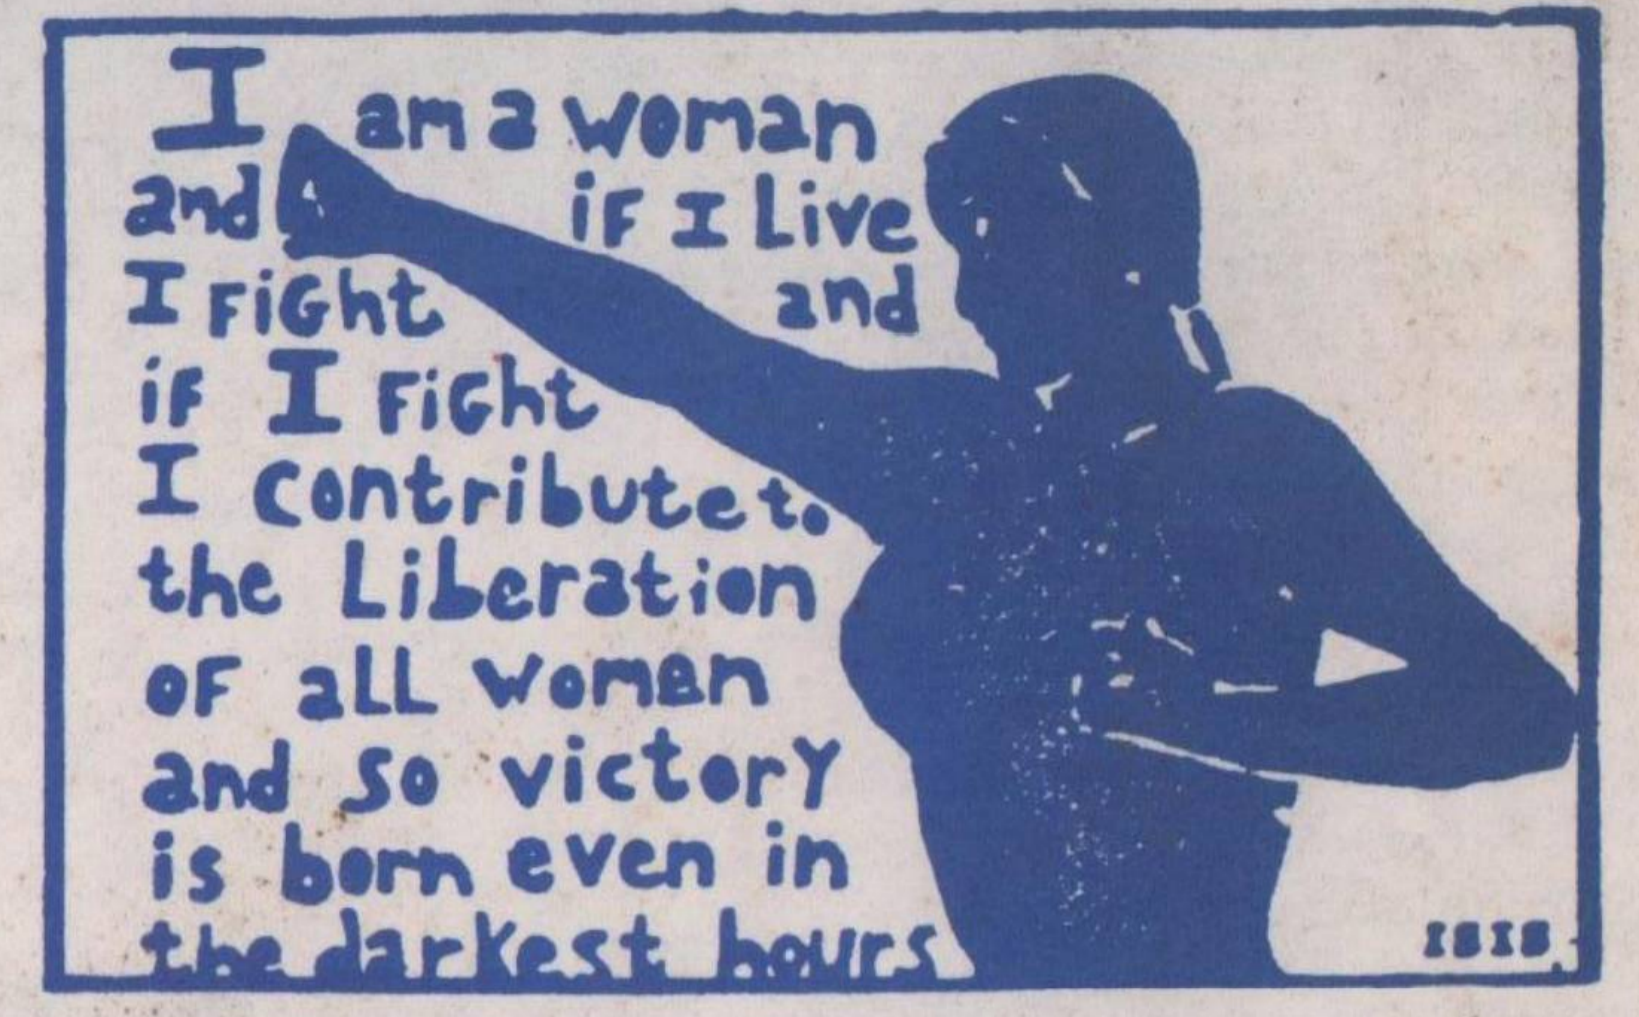 I am a woman
and if I Live
I FiGht and
iF I FiGht
I contribute to
the Liberation
oF aLL women
and so victory
is born even in
the darkest hours
ISIS